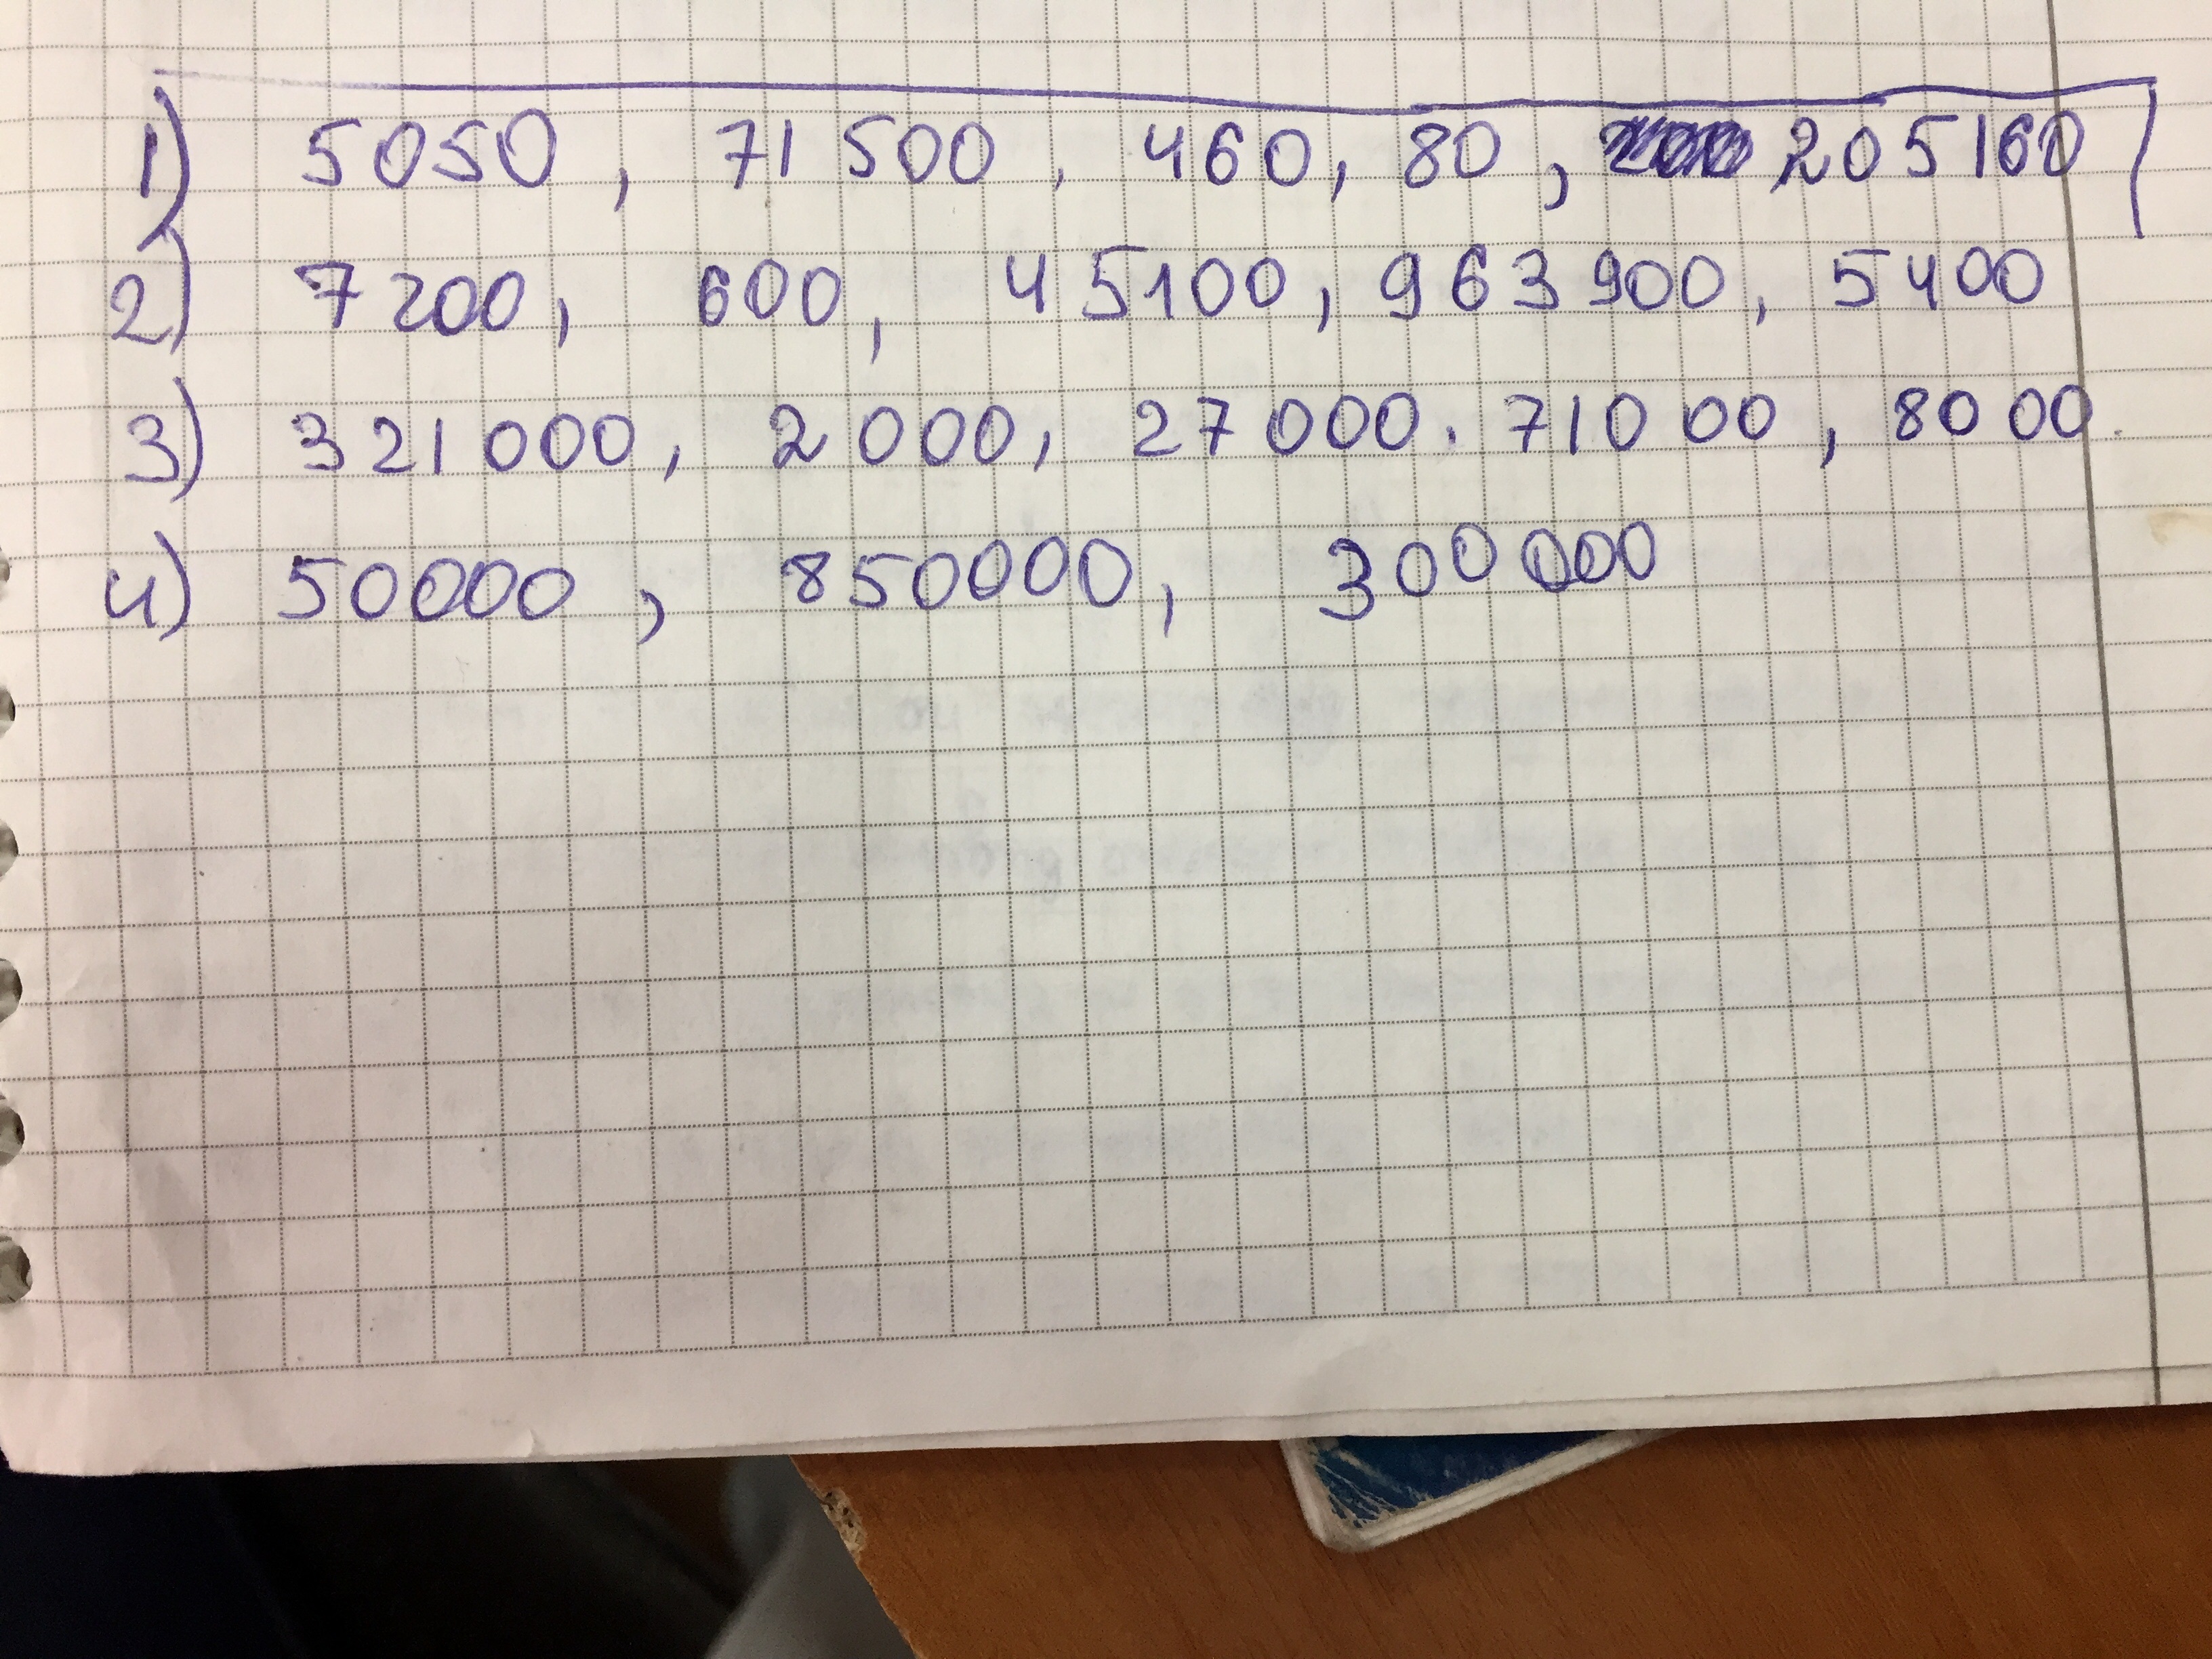 1) 5050, 71 500, 460, 80, 205160
2) 7200, 600, 45100, 963 900, 5400
3) 321000, 2 000, 27 000. 71000, 8000.
4) 50000, 850000, 300 000